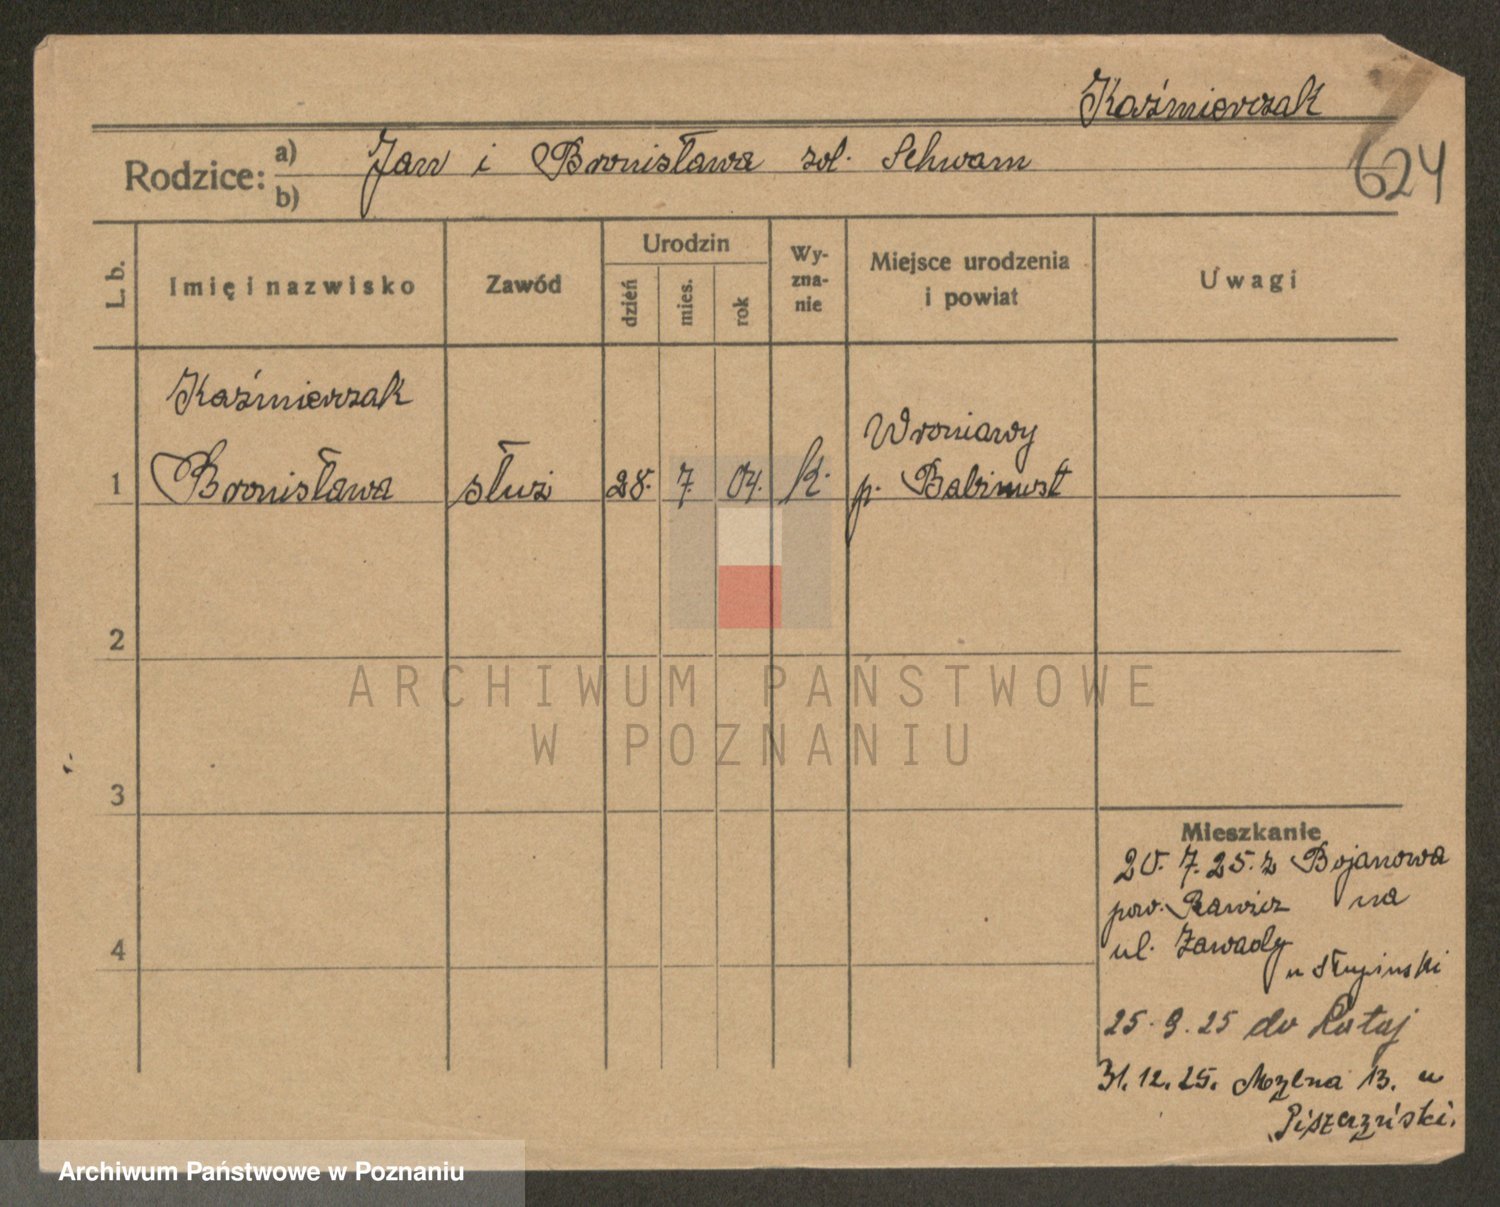 Kaźmierczak
624
Rodzice: a) b) Jan i Bronisława zd. Schwam
L. b.
Imię i nazwisko
Zawód
Urodzin
dzień
mies.
rok
Wy-
zna-
nie
Miejsce urodzenia
i powiat
Uwagi
Kaźmierczak
1 Bronisława służ 28. 7. 04. k. Wroniawy
p. Babimost
2
3
4
Mieszkanie
20. 7. 25. z Bojanowa
pow. Rawicz na
ul. Zawady
u Słupinski
25. 9. 25 do Rataj
31. 12. 25. 13. u
ARCHIWUM PAŃSTWOWE
W POZNANIU
Archiwum Państwowe w Poznaniu